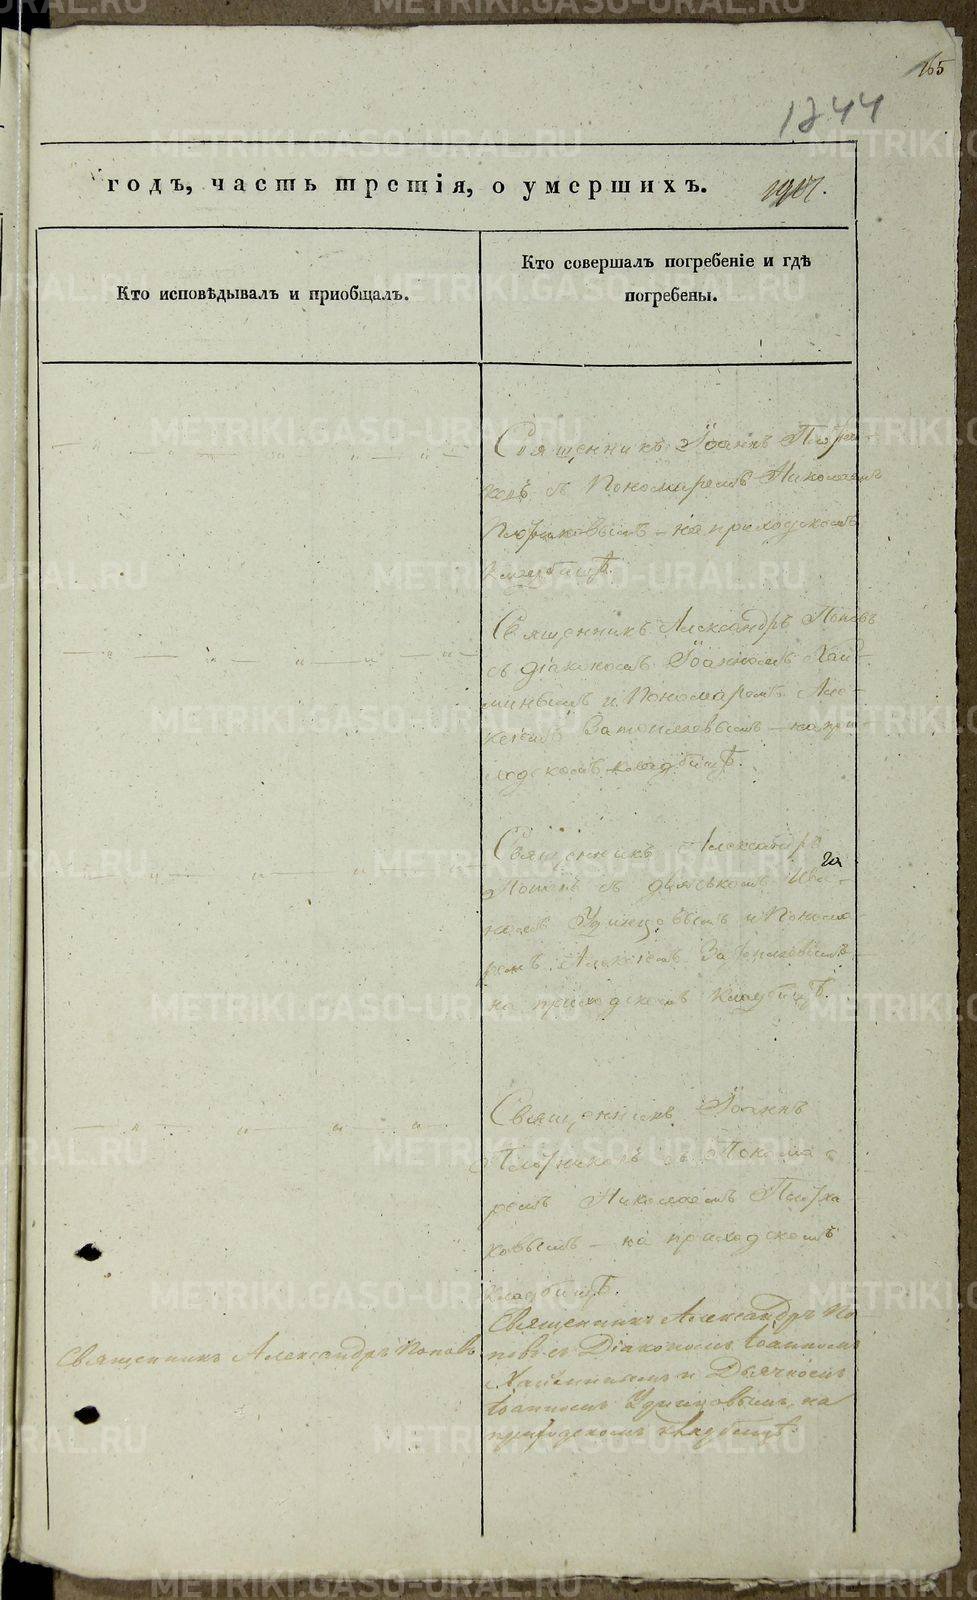 165
1244
годъ, часть третія, о умершихъ.
Кто исповѣдывалъ и приобщалъ.
Кто совершалъ погребеніе и гдѣ
погребены.
Священникъ Іоаннъ
съ Пономаремъ Николаемъ
на приходскомъ
кладбищѣ.
Священникъ Александръ Поповъ
съ діакономъ Іоанномъ
и Пономаремъ Але-
ксѣемъ на при-
ходскомъ кладбищѣ.
Священникъ Александръ
Поповъ съ дьячкомъ Ива-
номъ Удинцовымъ и Понома-
ремъ Алексѣемъ
на приходскомъ кладбищѣ.
Священникъ Іоаннъ
съ Понома-
ремъ Николаемъ
на приходскомъ
кладбищѣ.
Священникъ Александръ Поповъ.
Священникъ Александръ По-
повъ съ Діакономъ Іоанномъ
и Дьячкомъ
Іоанномъ Удинцовымъ, на
приходскомъ кладбищѣ.
METRIKI.GASO-URAL.RU